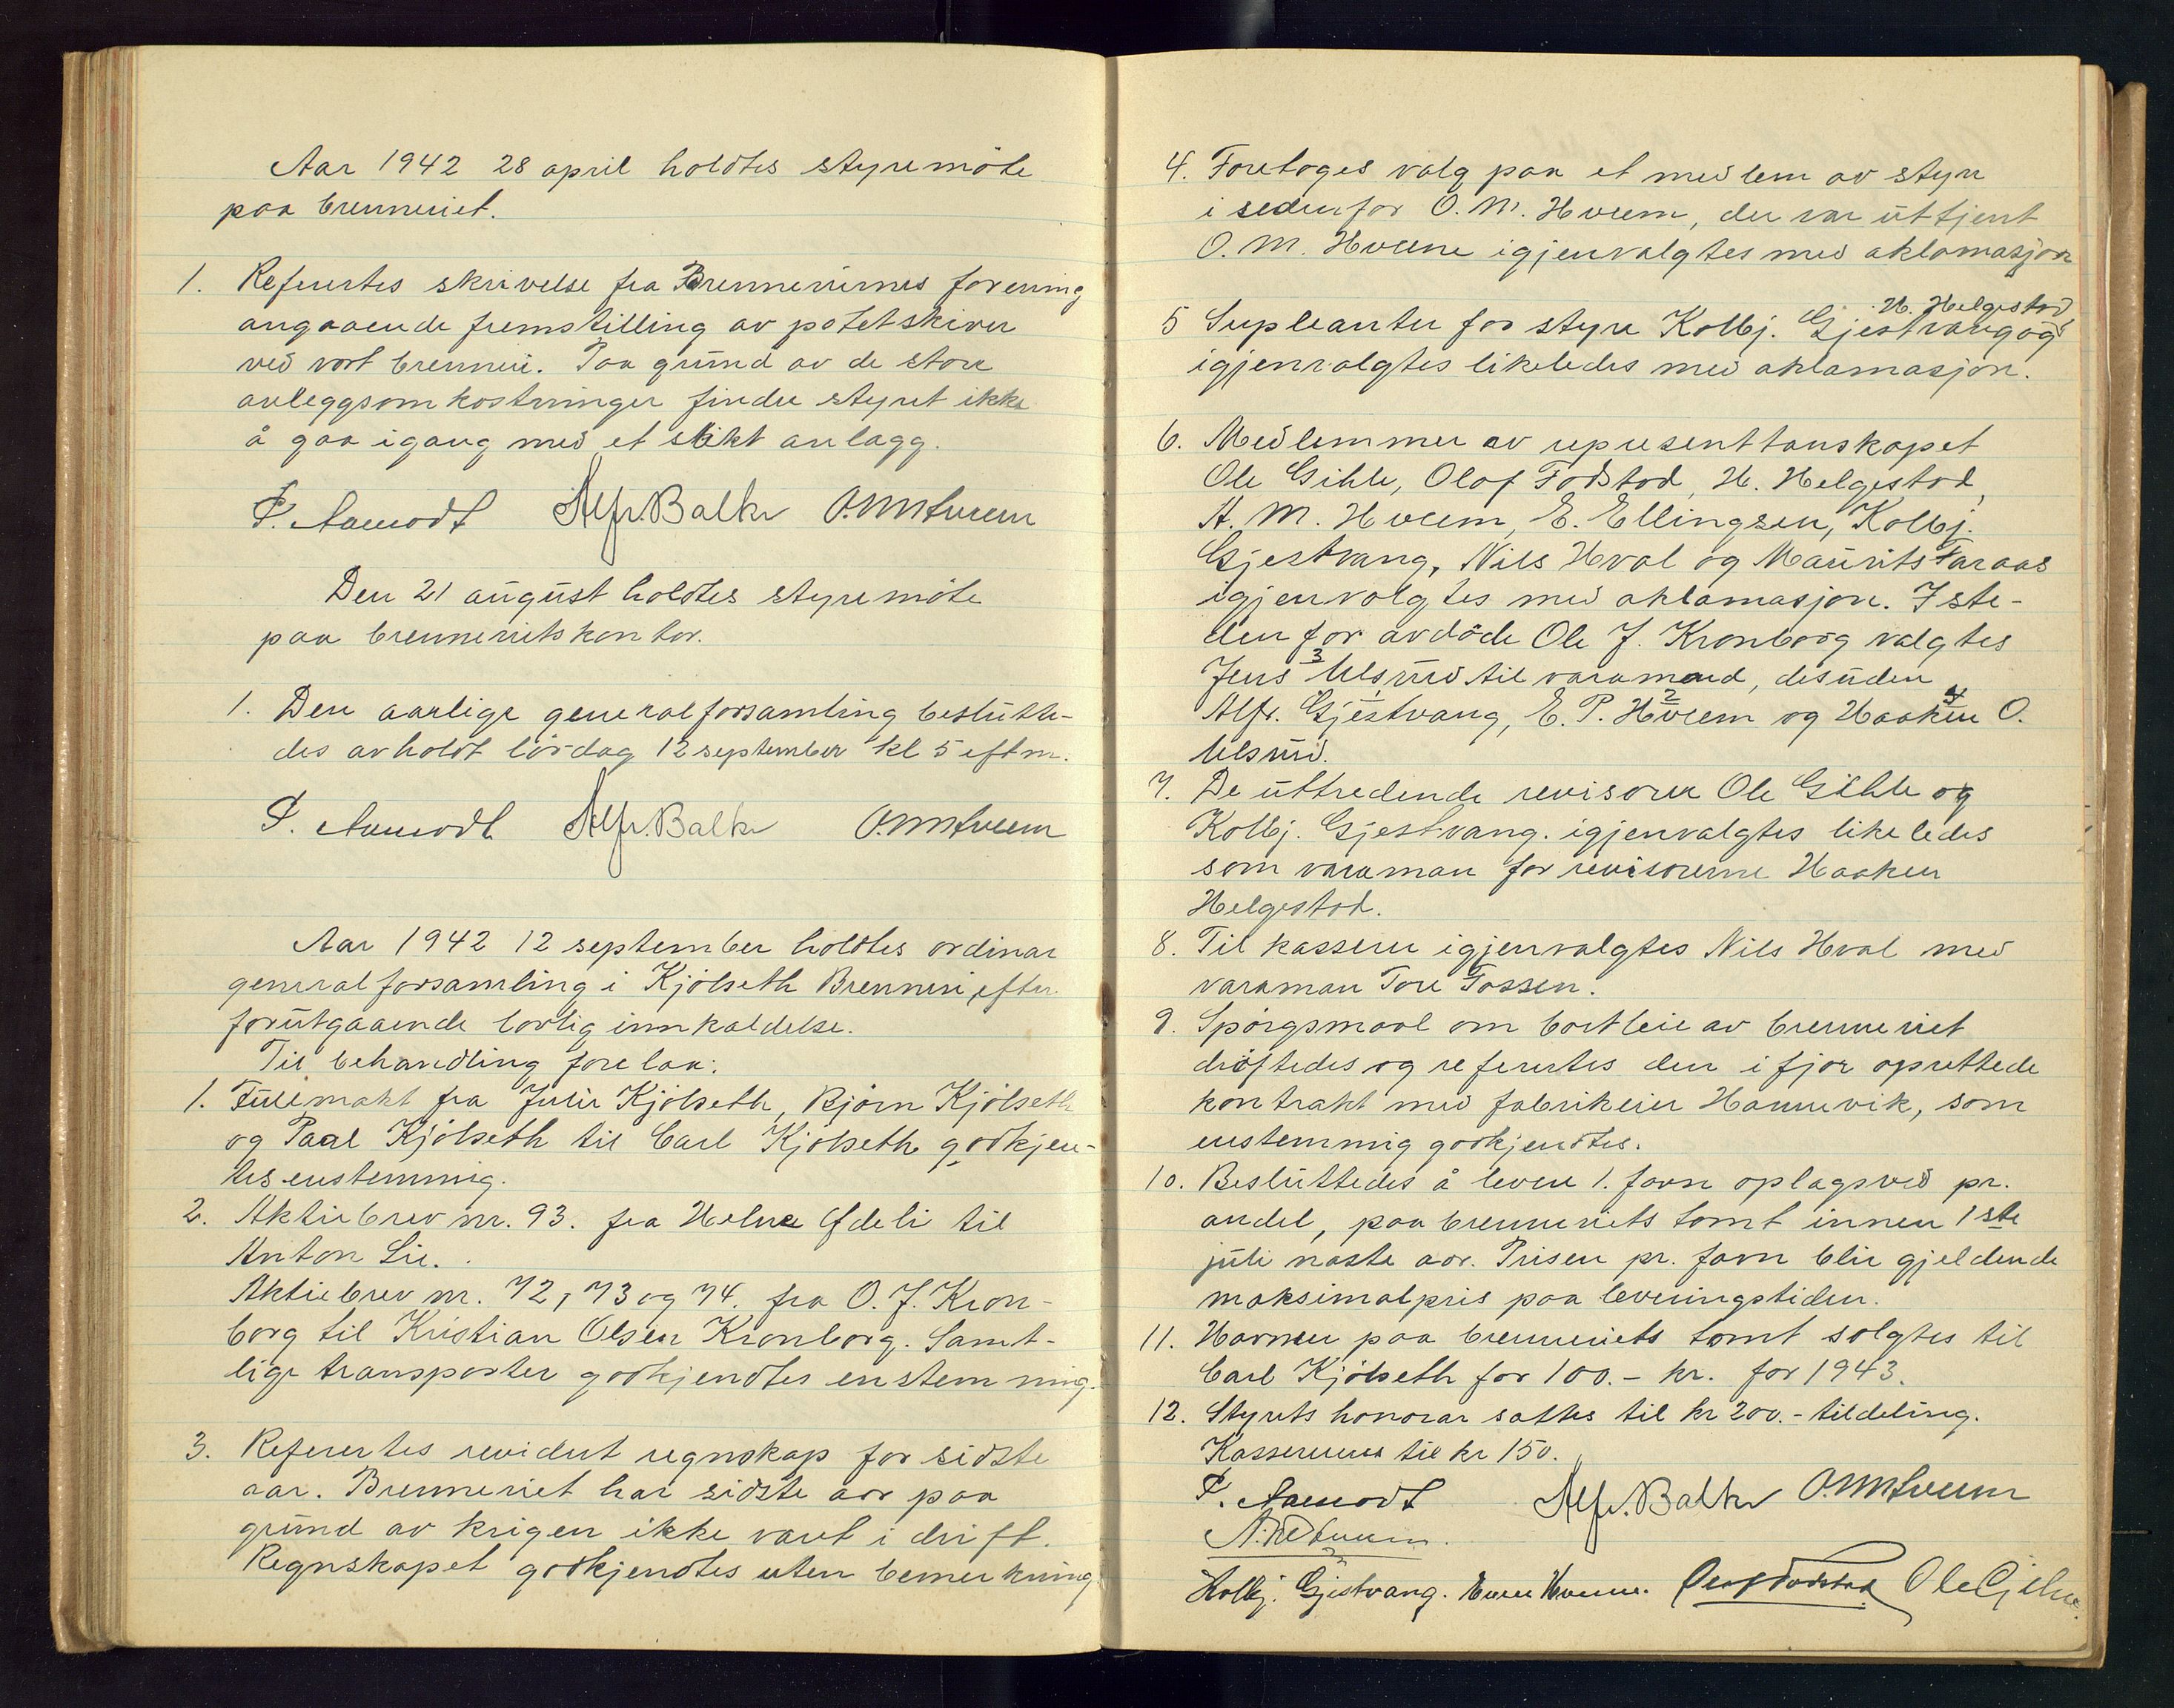 Aar 1942 28 april holdtes styremöte
paa brenneriet.
1. Refertes skrivelse fra Brenneriernes forening
angaaende fremstilling av potetskiver
ved vort brenneri. Paa grund av de store
anleggsomkostninger finder styret ikke
å gaa igang med et slikt anlagg.
P. Aamodt Alfr. Balke O.M. Hveem
Den 21 august holdtes styremöte
paa brennerietskontor.
1. Den aarlige generalforsamling beslutte-
des avholdt lördag 12 september kl 5 eftm.
P. Aamodt Alfr. Balke O.M. Hveem
Aar 1942 12 september holdtes ordinær
generalforsamling i Kjölseth Brenneri efter
forutgaaende lovlig innkaldelse.
Til behandling forelaa:
1. Fullmakt fra Julie Kjölseth, Björn Kjölseth
og Paal Kjölseth til Carl Kjölseth godkjen-
tes enstemmig.
2. Aktiebrev nr. 93. fra Helne Ofdeli til
Anton Lie.
Aktiebrev nr. 72, 73 og 74. fra O. J. Kron-
borg til Kristian Olsen Kronborg. Samt-
lige transporter godkjendtes enstemmig.
3. Refertes revidert regnskap for sidste
aar. Brenneriet har sidste aar paa
grund av krigen ikke været i drift.
Regnskapet godkjendtes uten bemerkning
4. Foretoges valg paa et medlem av styre
i stedenfor O. M. Hveem, der var uttjent
O. M. Hveem igjenvalgtes med aklamasjon
5 Supleanter for styre Kolbj. Gjestvang og H. Helgestad
igjenvalgtes likeledes med aklamasjon.
6. Medlemmer av representtanskapet
Ole Gihle, Olaf Fodstad, H. Helgestad,
A. M. Hveem, E. Ellingsen, Kolbj.
Gjestvang, Nils Hval og Maurits Faraas
igjenvalgtes med aklamasjon. Iste-
den for avdöde Ole J. Kronborg valgtes
Jens 3 Ulsrud til varamand, desuden
Alfr. Gjestvang, E. P. Hveem 2 og Haaken 4 O.
Ulsrud.
7. De uttredende revisorer Ole Gihle og
Kolbj. Gjestvang. igjenvalgtes likeledes
som varaman for revisorerne Haaken
Helgestad.
8. Til kasserer igjenvalgtes Nils Hval med
varaman Tore Fossen.
9. Spörgsmaal om bortleie av brenneriet
dröftedes og refertes den i fjor oprettede
kontrakt med fabrikeier Hannevik, som
enstemmig godkjendtes.
10. Besluttedes å levere 1. favn oplagsved pr.
andel, paa brenneriets tomt innen 1ste
juli næste aar. Prisen pr. favn blir gjeldende
maksimalpris paa leveringstiden.
11. Havnen paa brenneriets tomt solgtes til
Carl Kjölseth for 100.- kr. for 1943.
12. Styrets honorar sattes til kr 200.- tildeling.
Kassererens til kr 150.
P. Aamodt Alfr. Balke O.M. Hveem
A. M. Hveem.
Kolbj. Gjestvang. Even Hveem. Olaf Fodstad Ole Gihle.